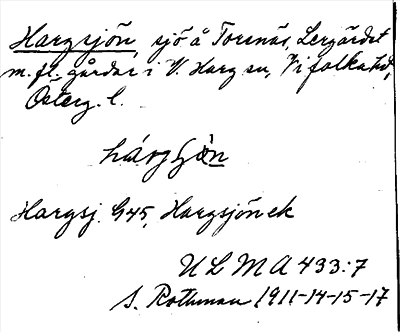 Hargsjön, sjö å Torenäs, Lergärdet
m. fl. gårdar i V. Harg sn, Vifolka hd,
Österg. l.
Hargsj. G45, Hargsjön ek
ULMA 433:7
S. Rothman 1911-14-15-17